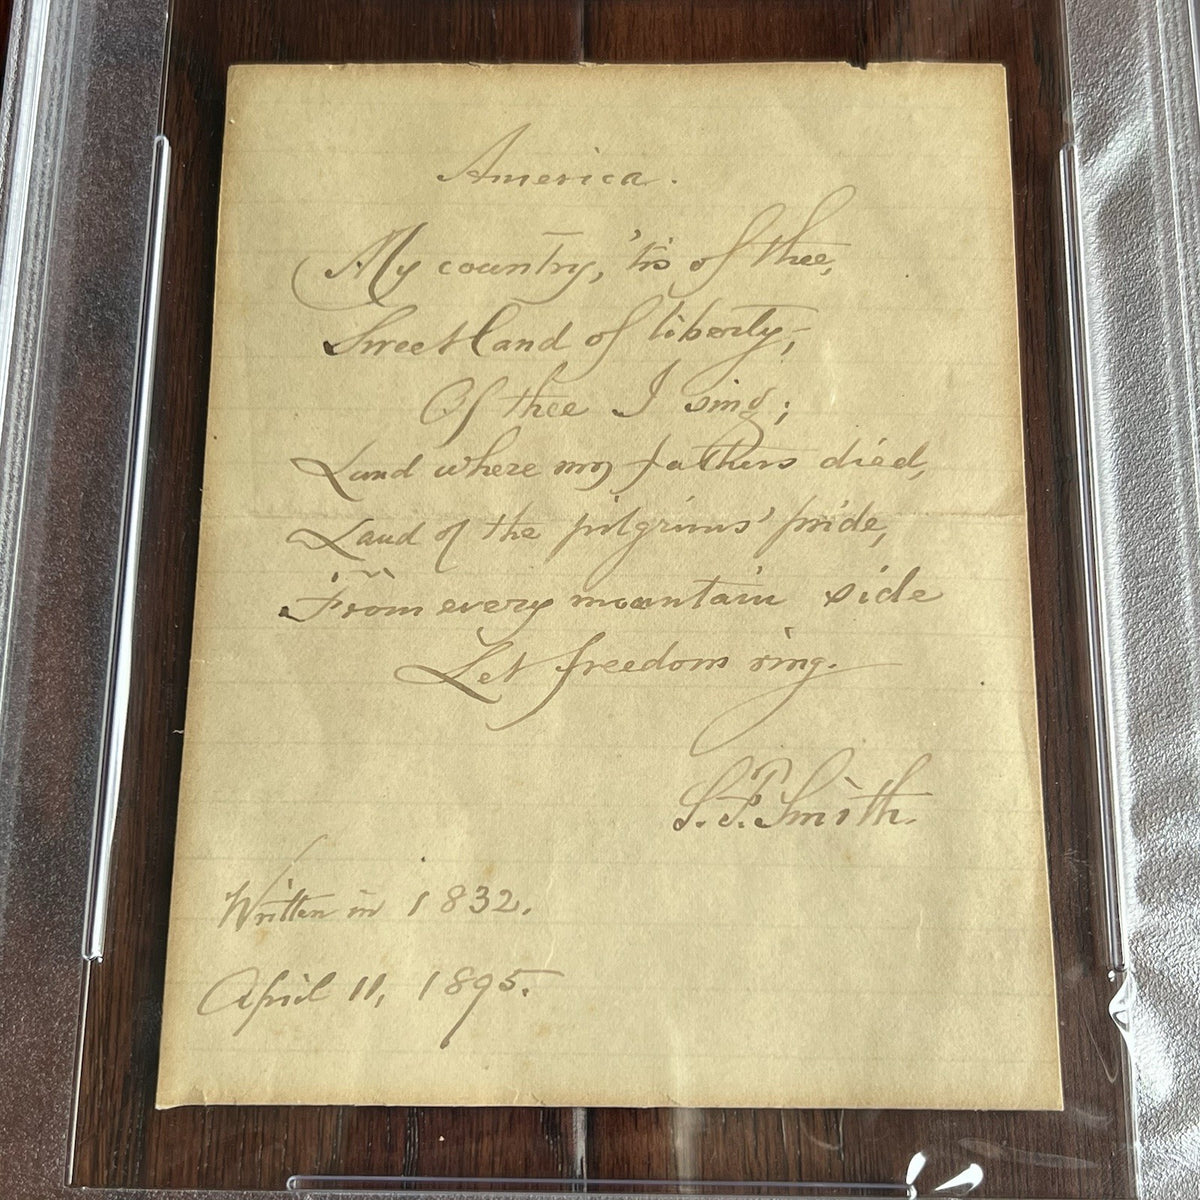 America.
My country, 'tis of thee,
Sweet land of liberty,
Of thee I sing;
Land where my fathers died,
Land of the pilgrims' pride,
From every mountain side
Let freedom ring.
S. F. Smith.
Written in 1832.
April 11, 1895.